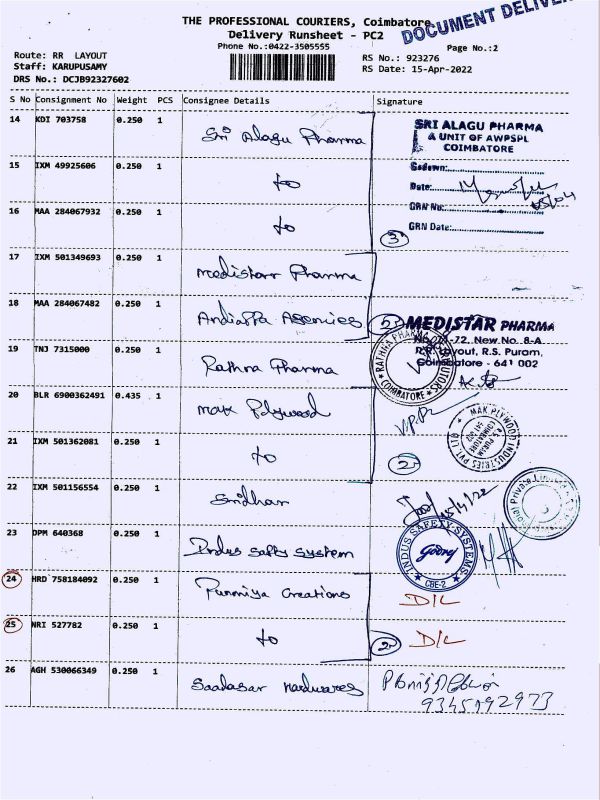 THE PROFESSIONAL COURIERS, Coimbatore
DOCUMENT DELIVER
Delivery Runsheet - PC2
Phone No.:0422-3505555
Page No.:2
Route: RR LAYOUT
RS No.: 923276
Staff: KARUPUSAMY
RS Date: 15-Apr-2022
DRS No.: DCJB92327602
S No Consignment No Weight PCS Consignee Details Signature
14 KDI 703758 0.250 1 Sri Alagu Pharma
SRI ALAGU PHARMA
A UNIT OF AWPSPL
COIMBATORE
15 IXM 49925606 0.250 1 to
Godown:
Date:
16 MAA 284067932 0.250 1 to
GRN No:
GRN Date:
3
17 IXM 501349693 0.250 1 Medistarr Pharma
18 MAA 284067482 0.250 1 Andiappa Agencies
2
MEDISTAR PHARMA
No. 71-72, New No. 8-A,
R.R. Layout, R.S. Puram,
Coimbatore - 641 002
19 TNJ 7315000 0.250 1 Rathna Pharma
RATHNA PHARMA DISTRIBUTORS
COIMBATORE
20 BLR 6900362491 0.435 1 Mak Plywood
MAK PLYWOOD INDUSTRIES PVT. LTD
R.S. PURAM
COIMBATORE
641 002
21 IXM 501362081 0.250 1 to
2
22 IXM 501156554 0.250 1 Sridhar
15/4/22
Private Limited
23 DPM 640368 0.250 1 Indus Safty System
INDUS SAFETY SYSTEMS
Godrej
CBE-2
24 HRD 758184092 0.250 1 Punniya Creations
D/L
25 NRI 527782 0.250 1 to
2
D/L
26 AGH 530066349 0.250 1 Saadasar Hardwares
9345192973